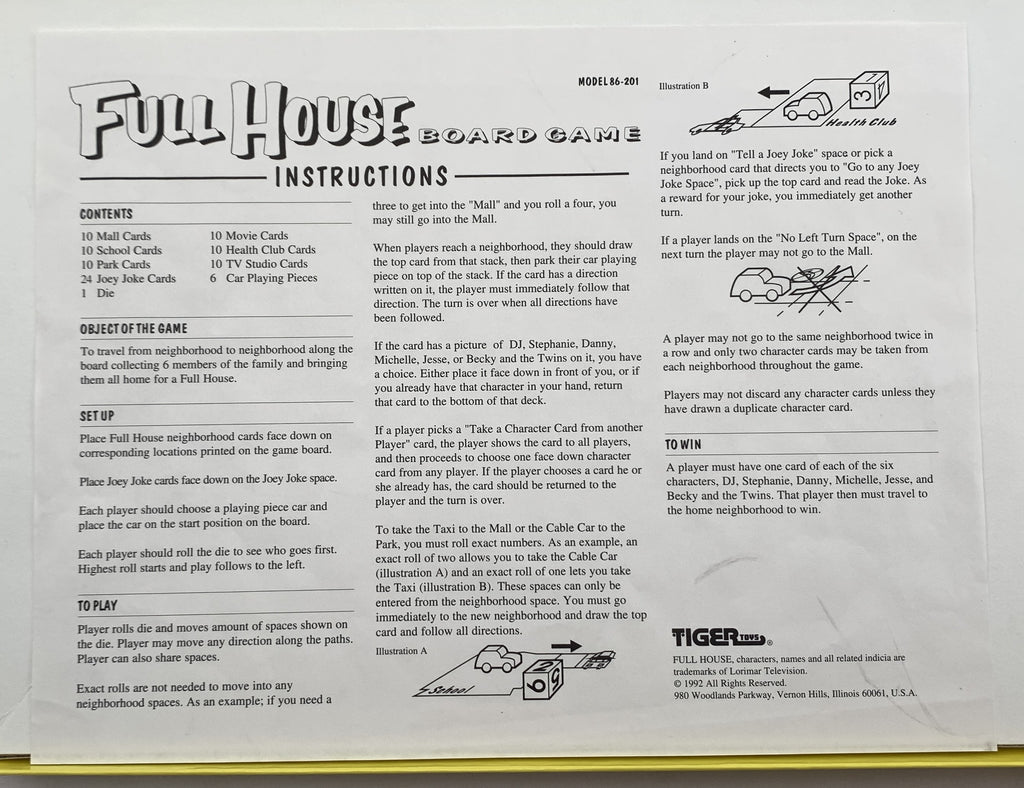 FULL HOUSE BOARD GAME
MODEL 86-201
INSTRUCTIONS
CONTENTS
10 Mall Cards
10 School Cards
10 Park Cards
24 Joey Joke Cards
1 Die
10 Movie Cards
10 Health Club Cards
10 TV Studio Cards
6 Car Playing Pieces
OBJECT OF THE GAME
To travel from neighborhood to neighborhood along the
board collecting 6 members of the family and bringing
them all home for a Full House.
SET UP
Place Full House neighborhood cards face down on
corresponding locations printed on the game board.
Place Joey Joke cards face down on the Joey Joke space.
Each player should choose a playing piece car and
place the car on the start position on the board.
Each player should roll the die to see who goes first.
Highest roll starts and play follows to the left.
TO PLAY
Player rolls die and moves amount of spaces shown on
the die. Player may move any direction along the paths.
Player can also share spaces.
Exact rolls are not needed to move into any
neighborhood spaces. As an example; if you need a
three to get into the "Mall" and you roll a four, you
may still go into the Mall.
When players reach a neighborhood, they should draw
the top card from that stack, then park their car playing
piece on top of the stack. If the card has a direction
written on it, the player must immediately follow that
direction. The turn is over when all directions have
been followed.
If the card has a picture of DJ, Stephanie, Danny,
Michelle, Jesse, or Becky and the Twins on it, you have
a choice. Either place it face down in front of you, or if
you already have that character in your hand, return
that card to the bottom of that deck.
If a player picks a "Take a Character Card from another
Player" card, the player shows the card to all players,
and then proceeds to choose one face down character
card from any player. If the player chooses a card he or
she already has, the card should be returned to the
player and the turn is over.
To take the Taxi to the Mall or the Cable Car to the
Park, you must roll exact numbers. As an example, an
exact roll of two allows you to take the Cable Car
(illustration A) and an exact roll of one lets you take
the Taxi (illustration B). These spaces can only be
entered from the neighborhood space. You must go
immediately to the new neighborhood and draw the top
card and follow all directions.
Illustration A
School
2
6
Illustration B
3
Health Club
If you land on "Tell a Joey Joke" space or pick a
neighborhood card that directs you to "Go to any Joey
Joke Space", pick up the top card and read the Joke. As
a reward for your joke, you immediately get another
turn.
If a player lands on the "No Left Turn Space", on the
next turn the player may not go to the Mall.
A player may not go to the same neighborhood twice in
a row and only two character cards may be taken from
each neighborhood throughout the game.
Players may not discard any character cards unless they
have drawn a duplicate character card.
TO WIN
A player must have one card of each of the six
characters, DJ, Stephanie, Danny, Michelle, Jesse, and
Becky and the Twins. That player then must travel to
the home neighborhood to win.
TIGER TOYS ®
FULL HOUSE, characters, names and all related indicia are
trademarks of Lorimar Television.
© 1992 All Rights Reserved.
980 Woodlands Parkway, Vernon Hills, Illinois 60061, U.S.A.